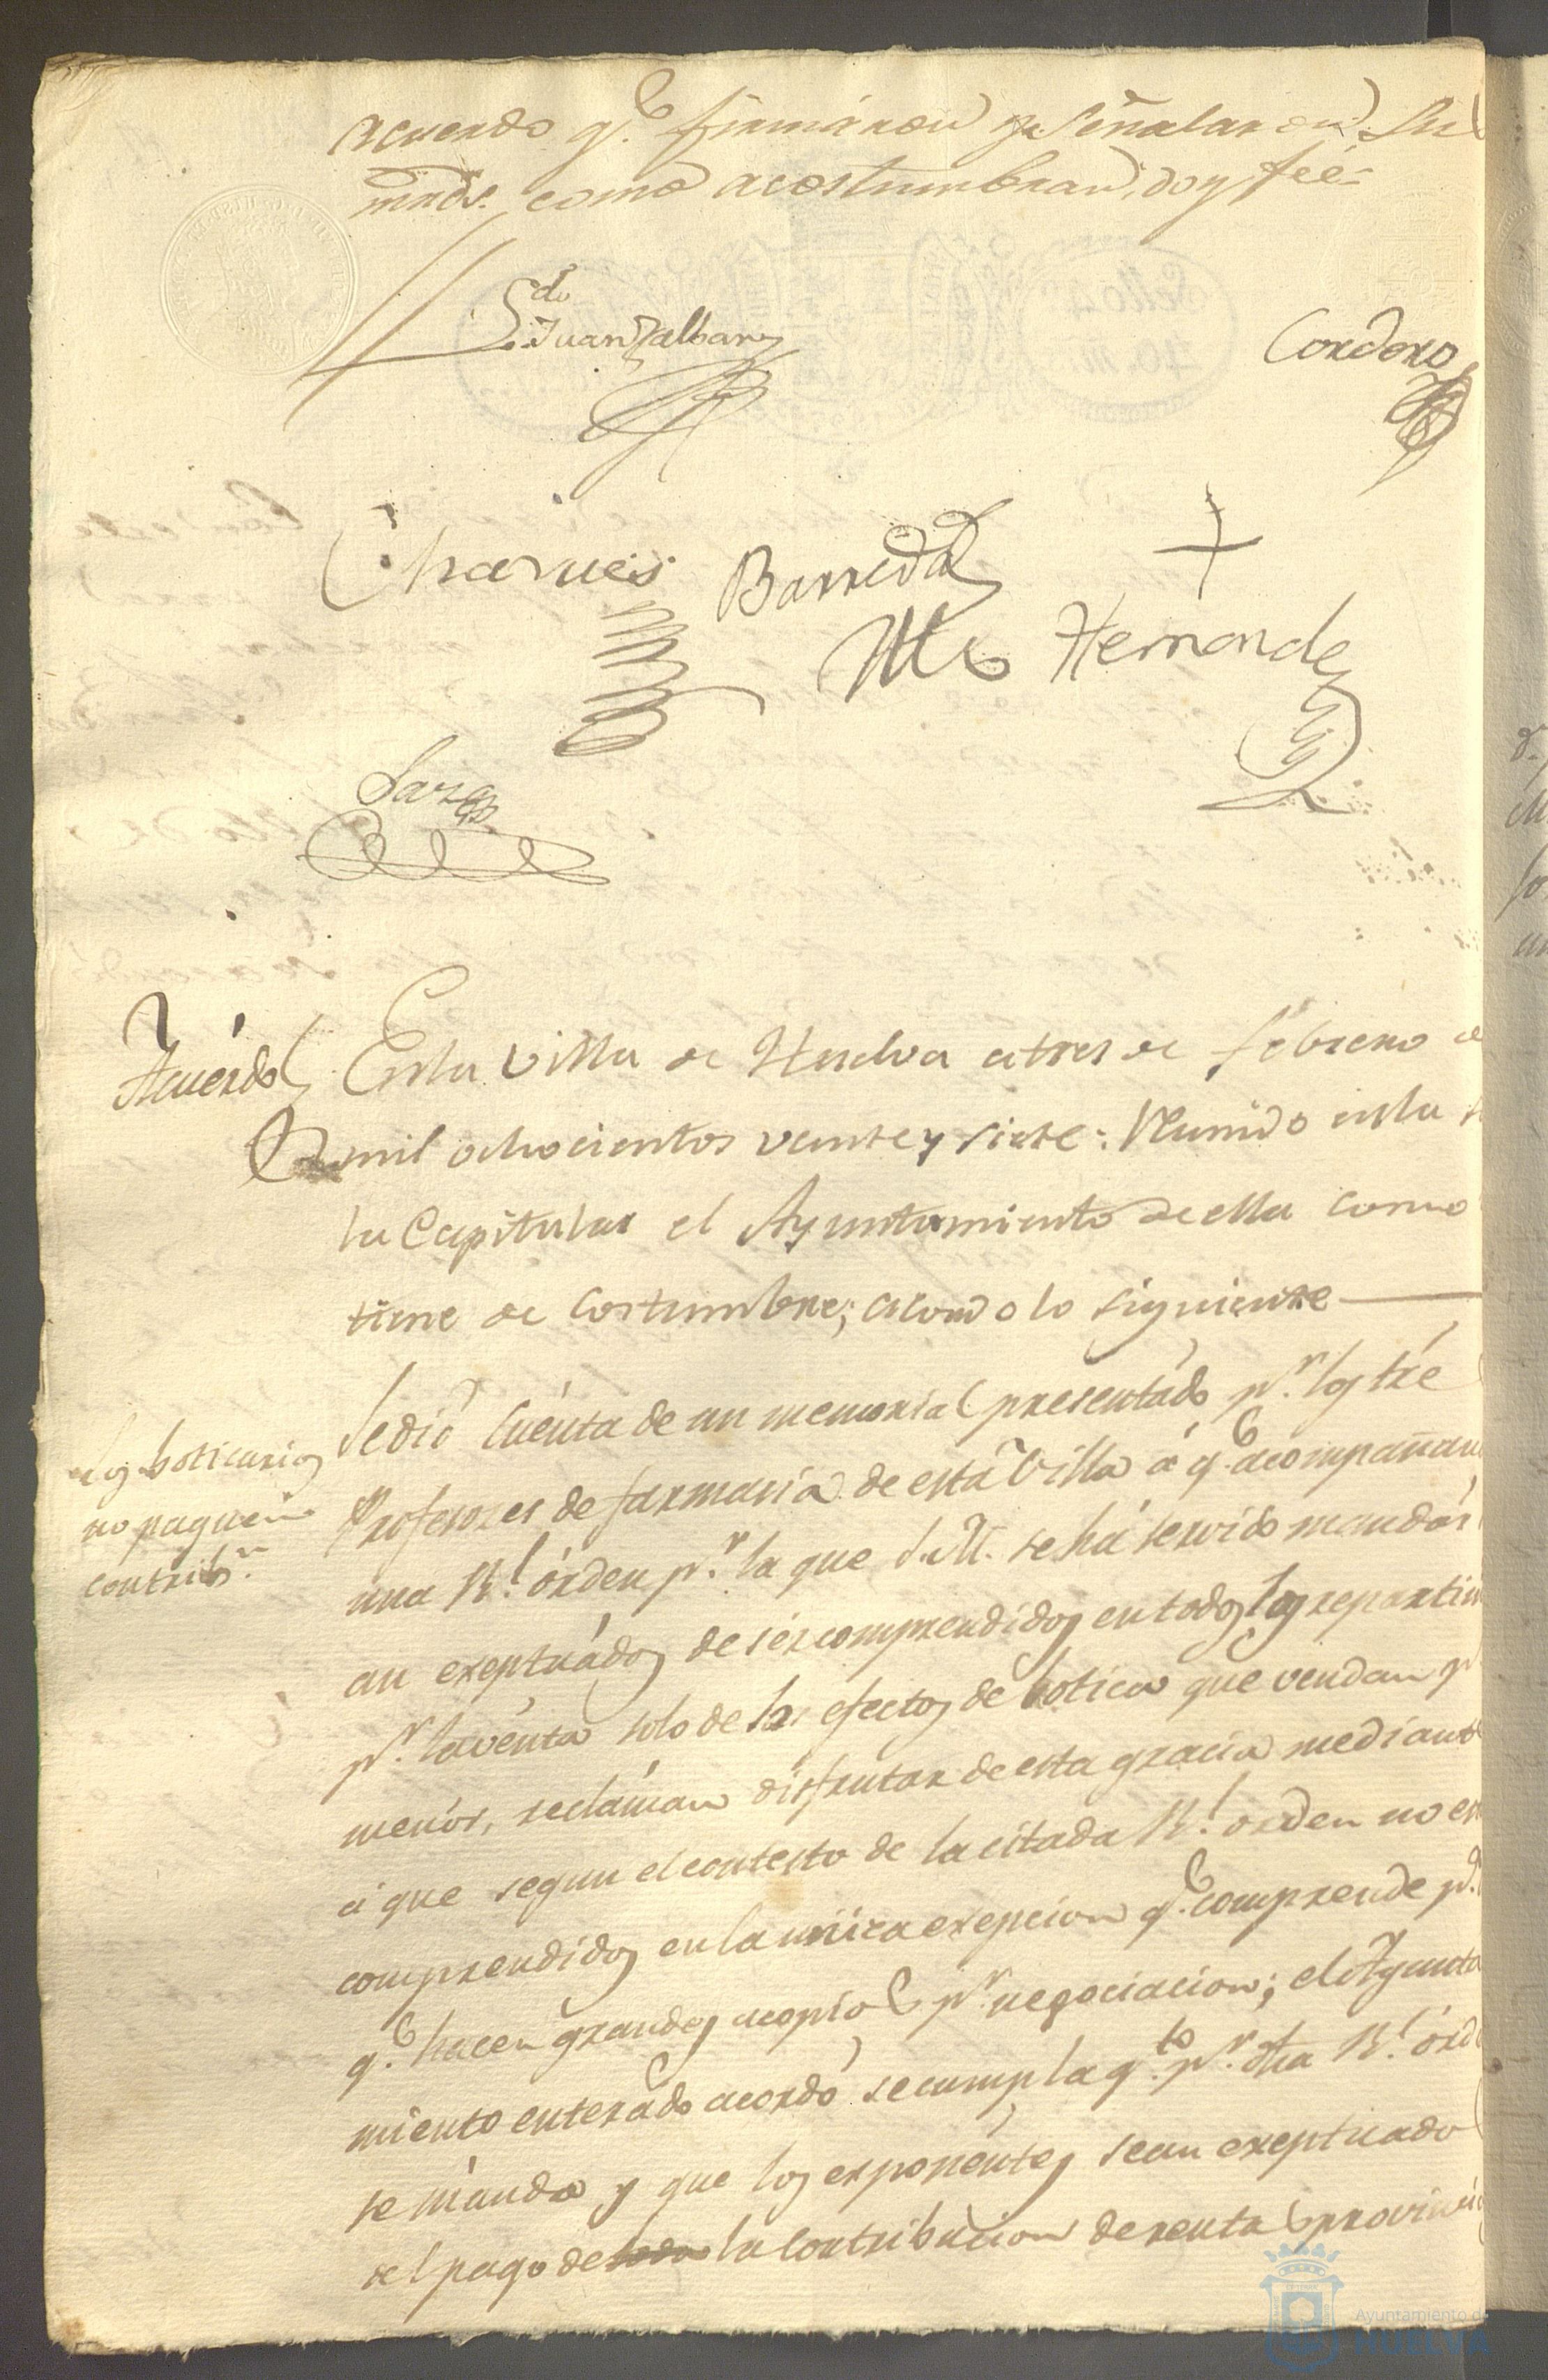 acuerdo q.e firmáron y señalaron su
mrds. como acostumbran, doy fée=
Ldo
Juan Zalbany
Cordero
Charneis
Barreda
+
Mo Hernandez
Sara
Acuerdo
Enla villa de Huelva atres de febrero d
mil ochocientos veinte y siete: Reunido enla
la Capitular el Ayuntamiento deella como
tiene de costumbre; acordo lo siguiente
los boticarios
no paguen
contrib.n
Sedió cuenta de un memorial presentado p.r los tre
Profesores de farmacia de esta Villa á q.e acompañan
una R.l órden p.r la que S.M. se há servido mandár
an exeptuádos de sér comprendidos en todos los repartim
p.r la venta solo de los efectos de botica que vendan p
menór, reclaman disfrutar de esta gracia mediant
á que segun el contesto de la citada R.l orden no es
comprendidos en la unica exepcion q.e comprende p.a
q.e hacen grandes acopios p.r negociacion; el Ayunta
miento enterado acordó se cumpla q.to p.r dha R.l órd
se manda y que los exponentes sean exeptuado
del pago de la Contribucion de rentas provinci
Ayuntamiento de
HUELVA